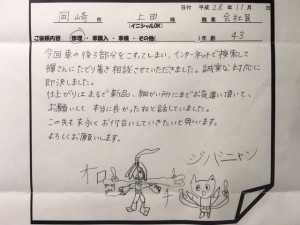 日付 平成 28年 11月
岡崎 市 上田 様 職業 会社員
(イニシャルOK)
ご依頼内容 修理・車購入・車検・その他( ) 年齢 43
今回車の後ろ部分をこすってしまい、インターネットで検索して
輝さんにたどり着き相談させていただきました。誠実な対応に
即決しました。
仕上がりはまるで新品、細かい所にまでお気遣い頂いて、
お願いして本当に良かったねと話していました。
この先も末永くお付合いしていきたいと思います。
よろしくお願いします。
ジバニャン
オロ
チ